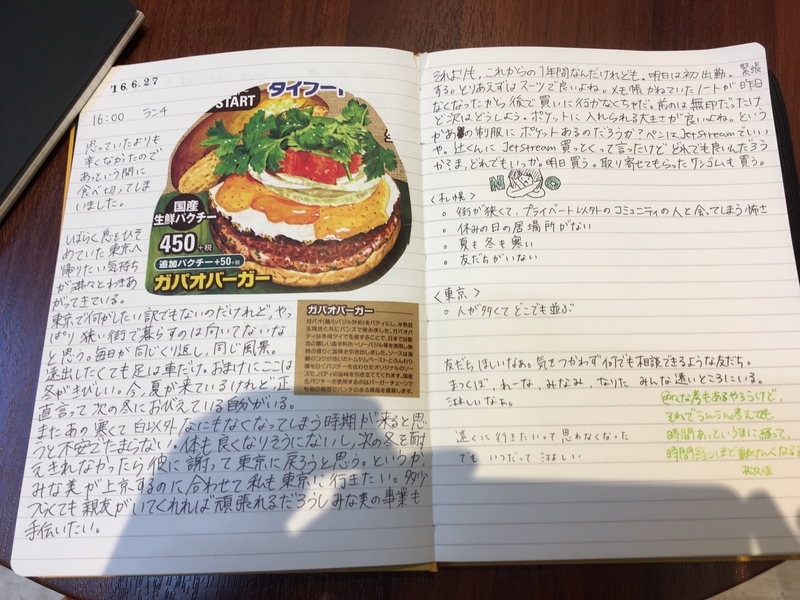 '16.6.27
16:00 ランチ
思っていたよりも
辛くなかったので
あっという間に
食べ切ってしま
いました。
START
タイフード
国産
生鮮パクチー
450+税
追加パクチー+50+税
ガパオバーガー
しばらく息をひそ
めていた東京へ
帰りたい気持ち
が沸々とわきあ
がってきている。
東京で何がしたい訳でもないのだけれど、やっ
ぱり狭い街で暮らすのは向いてないな
と思う。毎日が同じくり返し、同じ風景。
遠出したくても足は車だけ。おまけにここは
冬がきびしい。今、夏が来ているけれど正
直言って次の冬におびえている自分がいる。
またあの寒くて白以外なにもなくなってしまう時期が来ると思
うと不安でたまらない。体も良くなりそうにないし、次の冬を耐
えきれなかったら彼に謝って東京に戻ろうと思う。というか、
みな美が上京するのに合わせて私も東京に行きたい。多少
つらくても親友がいてくれれば頑張れるだろうしみな美の事業も
手伝いたい。
ガパオバーガー
それよりも、これからの1年間なんだけれども。明日は初出勤。緊張
する。とりあえずはスーツで良いよね。メモ帳がわりにしていたノートが昨日
なくなったから後で買いに行かなくちゃだ。前のは無印だったけ
ど次はどうしよう。ポケットに入れられる大きさが良いよね。という
かあの制服にポケットあるのだろうか?ペンはJetstreamでいい
や。辻くんにJetstream買ってくって言ったけどどれでも良いんだろう
か?ま、どれでもいっか。明日買う。取り寄せてもらったワンゴムも買う。
NO
<札幌>
○ 街が狭くて、プライベート以外のコミュニティの人と会ってしまう怖さ
○ 休みの日の居場所がない
○ 夏も冬も寒い
○ 友だちがいない
<東京>
○ 人が多くてどこでも並ぶ
友だちほしいなぁ。気をつかわず何でも相談できるような友だち。
まつくぼ、れーな、みなみ、なりた みんな遠いところにいる。
淋しいなぁ。
遠くに行きたいって思わなくなった
でも いつだって 淋しい
そんな考もあるやろうけど、
それでうんうん考えても
時間あっというまに経って、